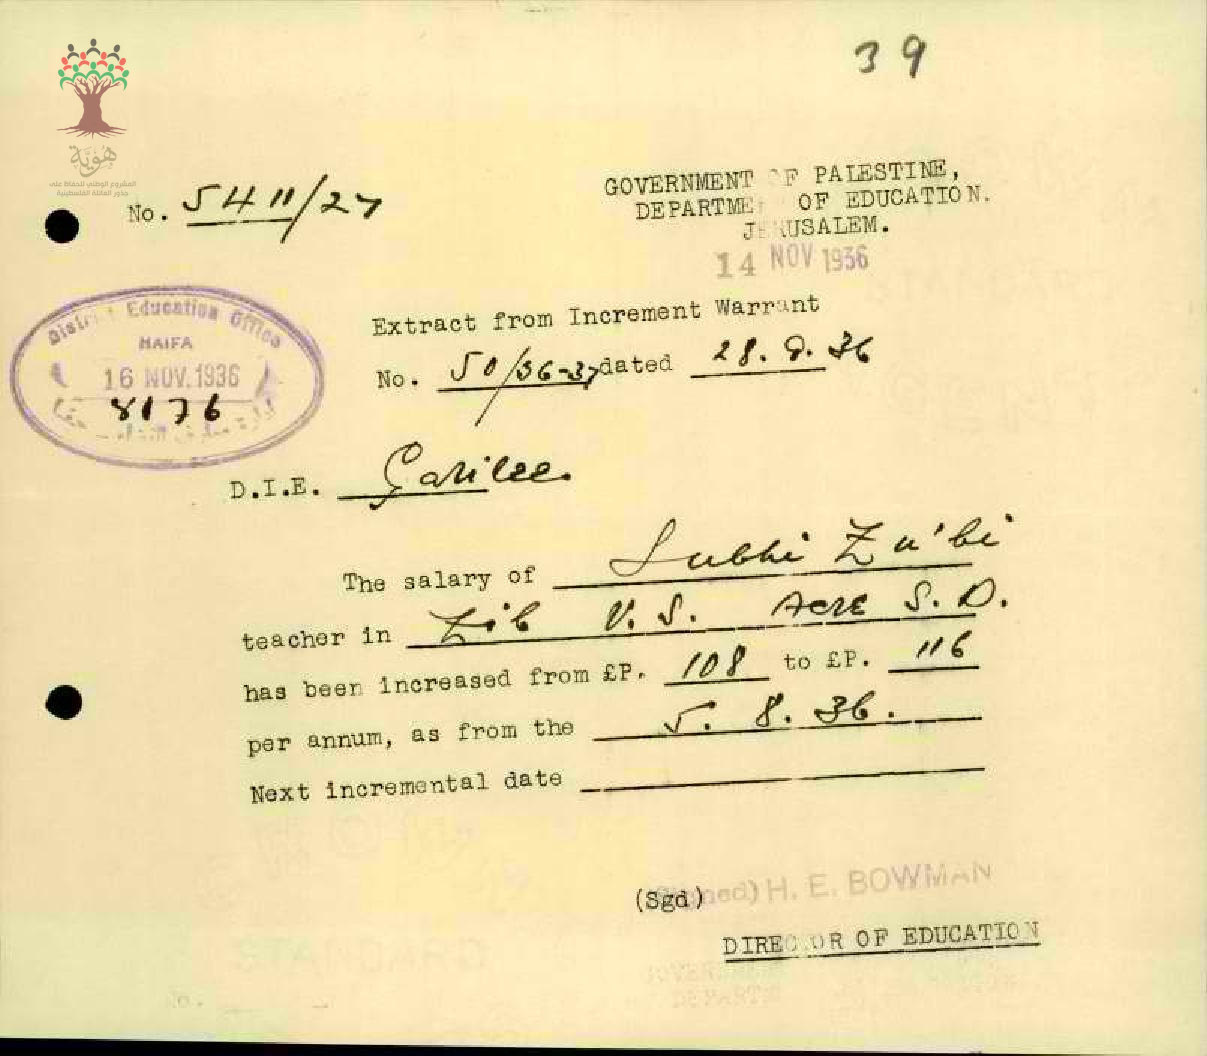 39
هوية
المشروع الوطني للحفاظ على
جذور العائلة الفلسطينية
No. 5411/27
GOVERNMENT OF PALESTINE,
DEPARTMENT OF EDUCATION.
JERUSALEM.
14 NOV 1936
District Education Office
HAIFA
16 NOV. 1936
8176
Extract from Increment Warrant
No. 50/36-37 dated 28.9.36
D.I.E. Galilee.
The salary of Subhi Zu'bi
teacher in Zib V.S. Acre S.D.
has been increased from £P. 108 to £P. 116
per annum, as from the 5. 8. 36.
Next incremental date
(Sgd) (Signed) H. E. BOWMAN
DIRECTOR OF EDUCATION